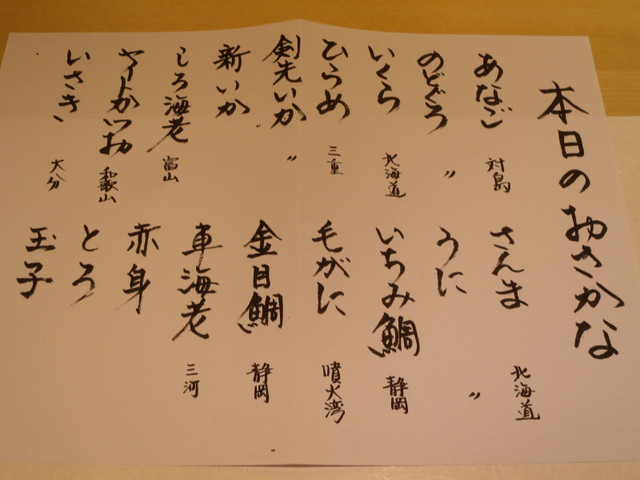 本日のおさかな
あなご 対島
のどぐろ 〃
いくら 北海道
ひらめ 三重
剣先いか 〃
新いか
しろ海老 富山
ヤイトがつお 和歌山
いさき 大分
さんま 北海道
うに 〃
いちみ鯛 静岡
毛がに 噴火湾
金目鯛 静岡
車海老 三河
赤身
とろ
玉子